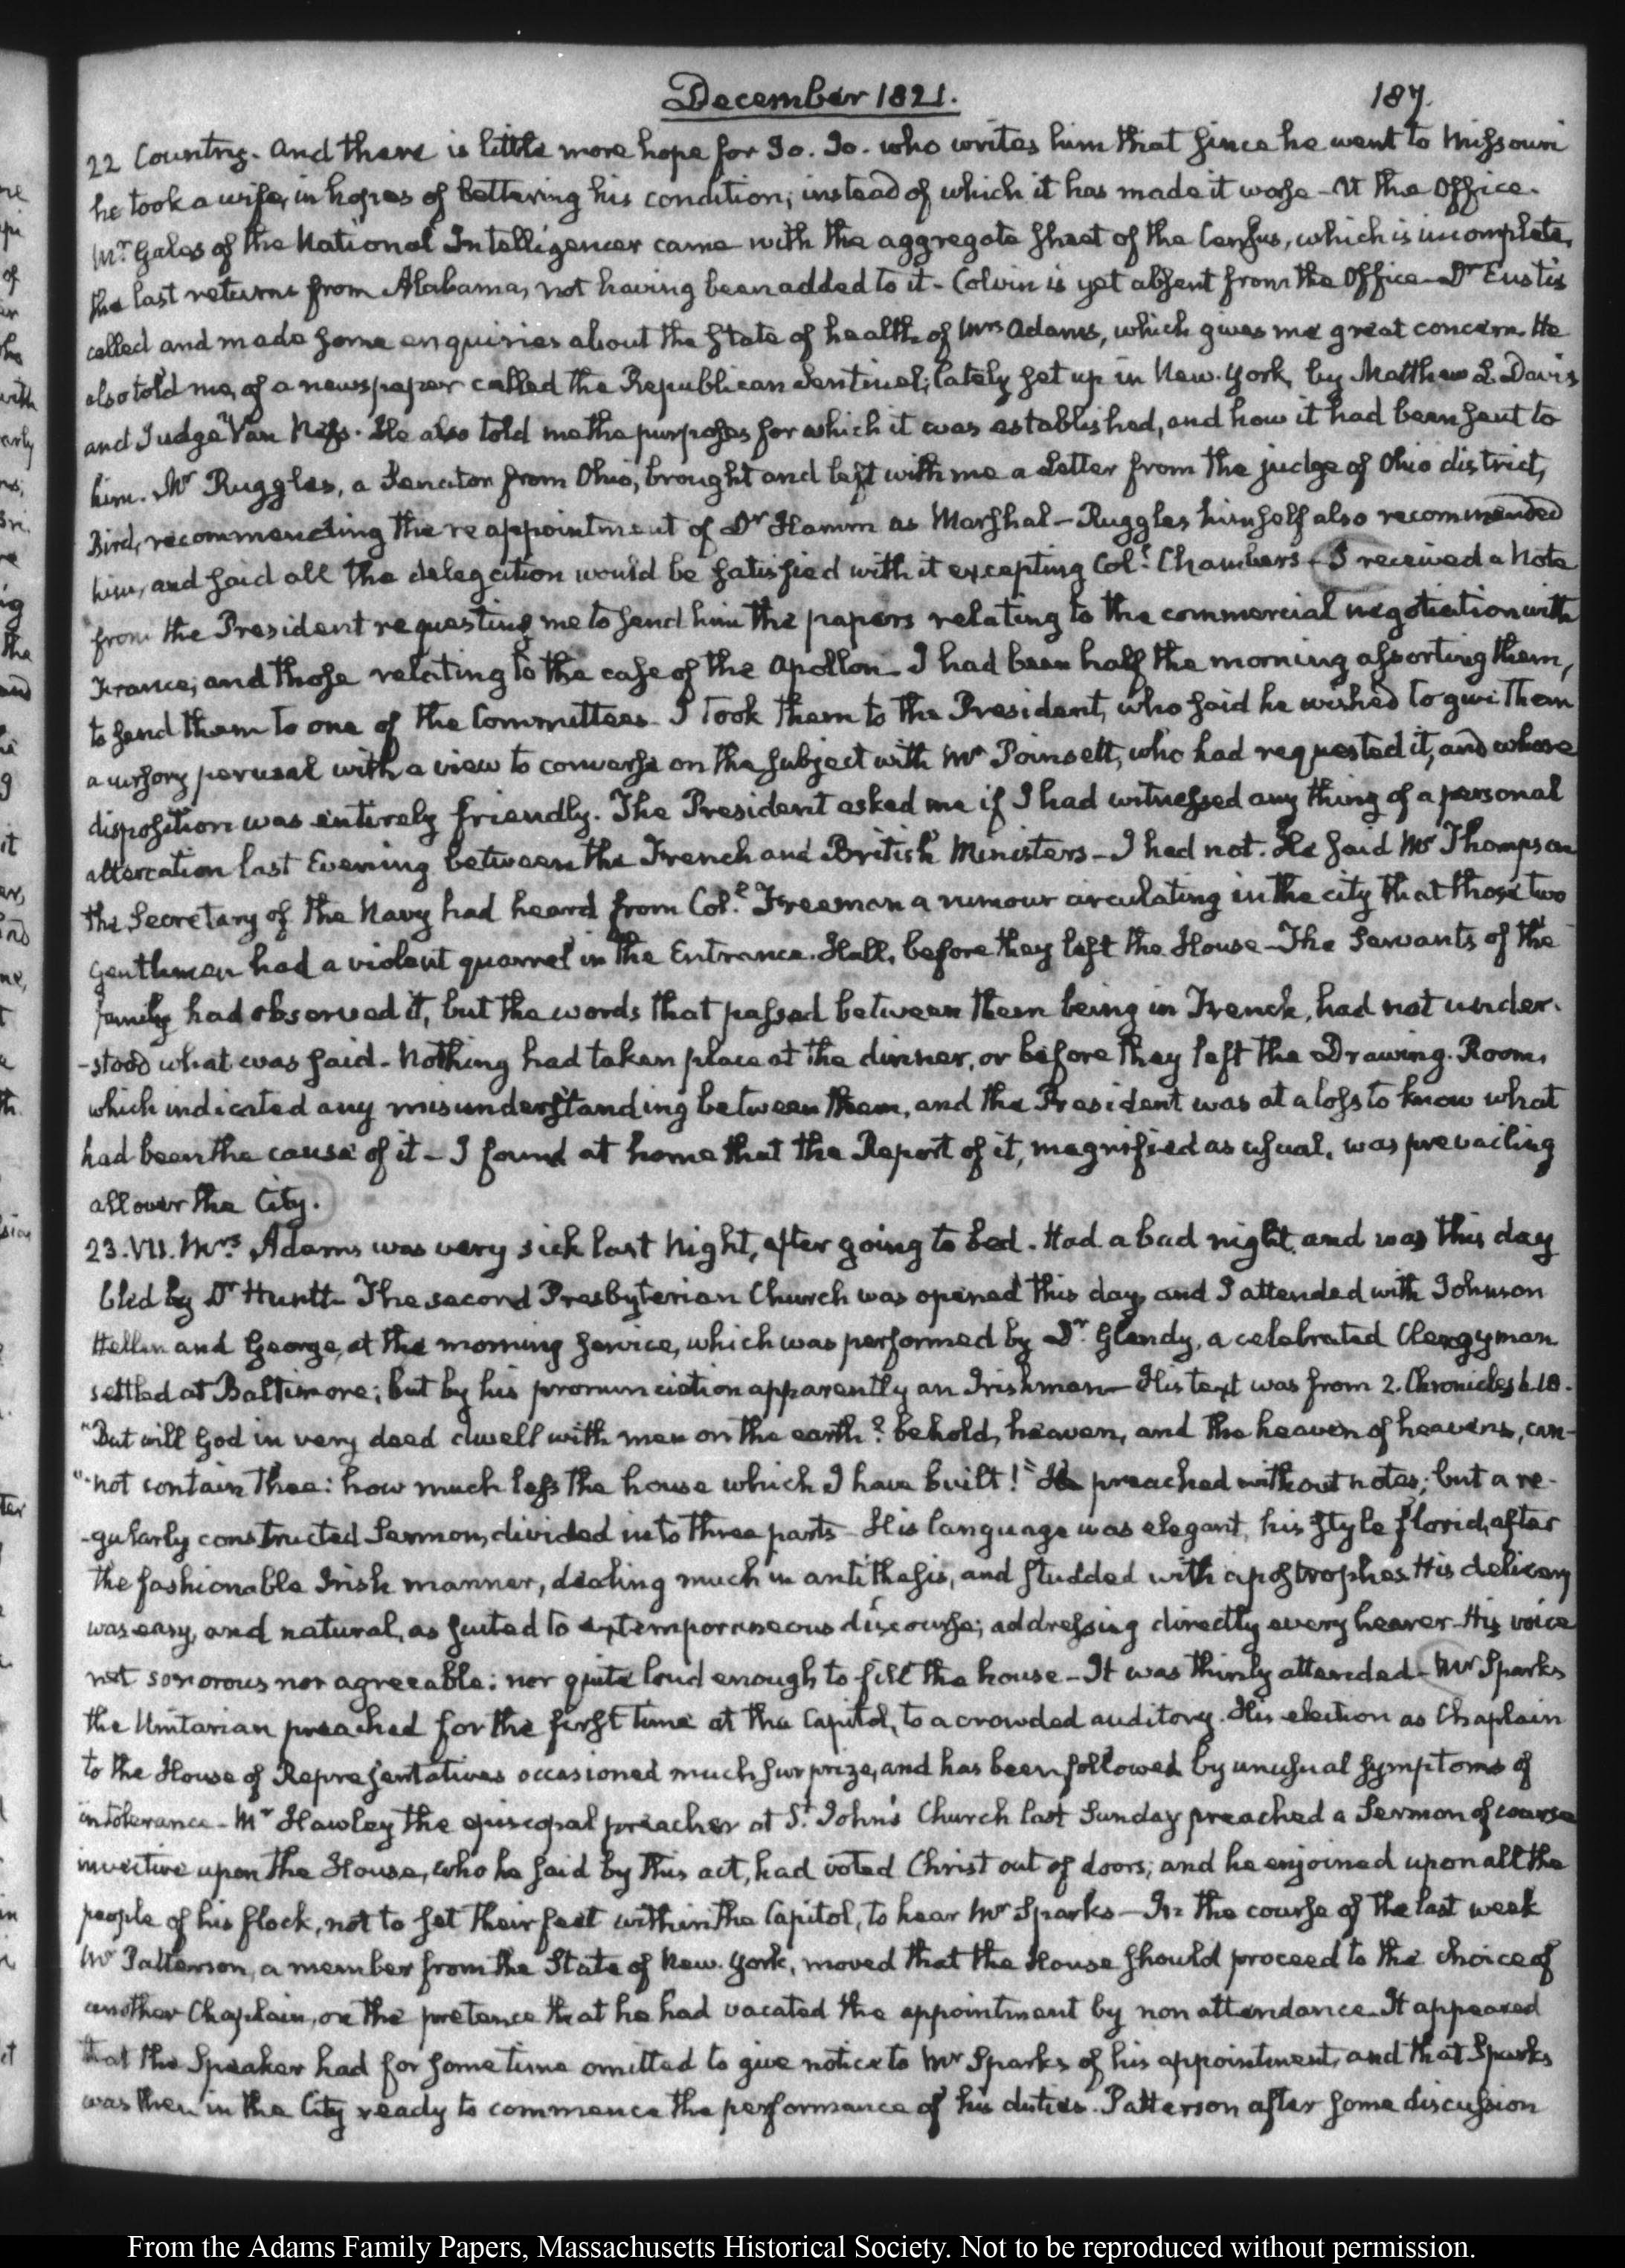 December 1821.
187.
22 Country. And there is little more hope for Jo. Jo. who writes him that since he went to Missouri
he took a wife, in hopes of bettering his condition; instead of which it has made it worse - At the Office.
Mr. Gales of the National Intelligencer came with the aggregate sheet of the Census, which is incomplete,
the last returns from Alabama, not having been added to it - Colvin is yet absent from the Office - Dr Eustis
called and made some enquiries about the state of health of Mrs Adams, which gives me great concern. He
also told me, of a newspaper called the Republican Sentinel; lately set up in New-York, by Matthew L. Davis
and Judge Van Ness. He also told me the purposes for which it was established, and how it had been sent to
him. Mr Ruggles, a Senator from Ohio, brought and left with me a Letter from the judge of Ohio district,
Bird, recommending the reappointment of Dr Hamm as Marshal - Ruggles himself also recommended
him, and said all the delegation would be satisfied with it excepting Coll. Chambers - I received a Note
from the President requesting me to send him the papers relating to the commercial negotiation with
France; and those relating to the case of the Apollon - I had been half the morning assorting them,
to send them to one of the Committees - I took them to the President, who said he wished to give them
a cursory perusal with a view to converse on the subject with Mr Poinsett, who had requested it, and whose
disposition was entirely friendly. The President asked me if I had witnessed any thing of a personal
altercation last Evening between the French and British Ministers - I had not. He said Mr Thompson
the Secretary of the Navy had heard from Col.l Freeman a rumour circulating in the city that those two
Gentlemen had a violent quarrel in the Entrance-Hall, before they left the House - The Servants of the
family had observed it, but the words that passed between them being in French, had not under-
-stood what was said - Nothing had taken place at the dinner, or before they left the Drawing-Room,
which indicated any misunderstanding between them, and the President was at a loss to know what
had been the cause of it - I found at home that the Report of it, magnified as usual, was prevailing
all over the City.
23. VII. Mrs. Adams was very sick last Night, after going to bed. Had a bad night and was this day
bled by Dr Huntt - The second Presbyterian Church was opened this day, and I attended with Johnson
Hellen and George, at the morning service, which was performed by Dr. Glendy, a celebrated Clergyman
settled at Baltimore; but by his pronunciation apparently an Irishman - His text was from 2. Chronicles 6.18.
"But will God in very deed dwell with men on the earth? behold, heaven, and the heaven of heavens, can-
"-not contain thee: how much less the house which I have built!" He preached without notes; but a re-
-gularly constructed Sermon, divided into three parts - His language was elegant, his style florid, after
the fashionable Irish manner, dealing much in antithesis, and studded with apostrophes. His delivery
was easy, and natural, as suited to extemporaneous discourse; addressing directly every hearer - His voice
not sonorous nor agreeable; nor quite loud enough to fill the house - It was thinly attended - Mr Sparks
the Unitarian preached for the first time at the Capitol, to a crowded auditory. His election as Chaplain
to the House of Representatives occasioned much surprize, and has been followed by unusual symptoms of
intolerance - Mr Hawley the episcopal preacher at St. John's Church last Sunday preached a Sermon of coarse
invective upon the House, who he said by this act, had voted Christ out of doors; and he enjoined upon all the
people of his flock, not to set their feet within the Capitol, to hear Mr Sparks - In the course of the last week
Mr Patterson, a member from the State of New-York, moved that the House should proceed to the choice of
another Chaplain, on the pretence that he had vacated the appointment by non attendance - It appeared
that the Speaker had for some time omitted to give notice to Mr Sparks of his appointment, and that Sparks
was then in the City ready to commence the performance of his duties. Patterson after some discussion
From the Adams Family Papers, Massachusetts Historical Society. Not to be reproduced without permission.